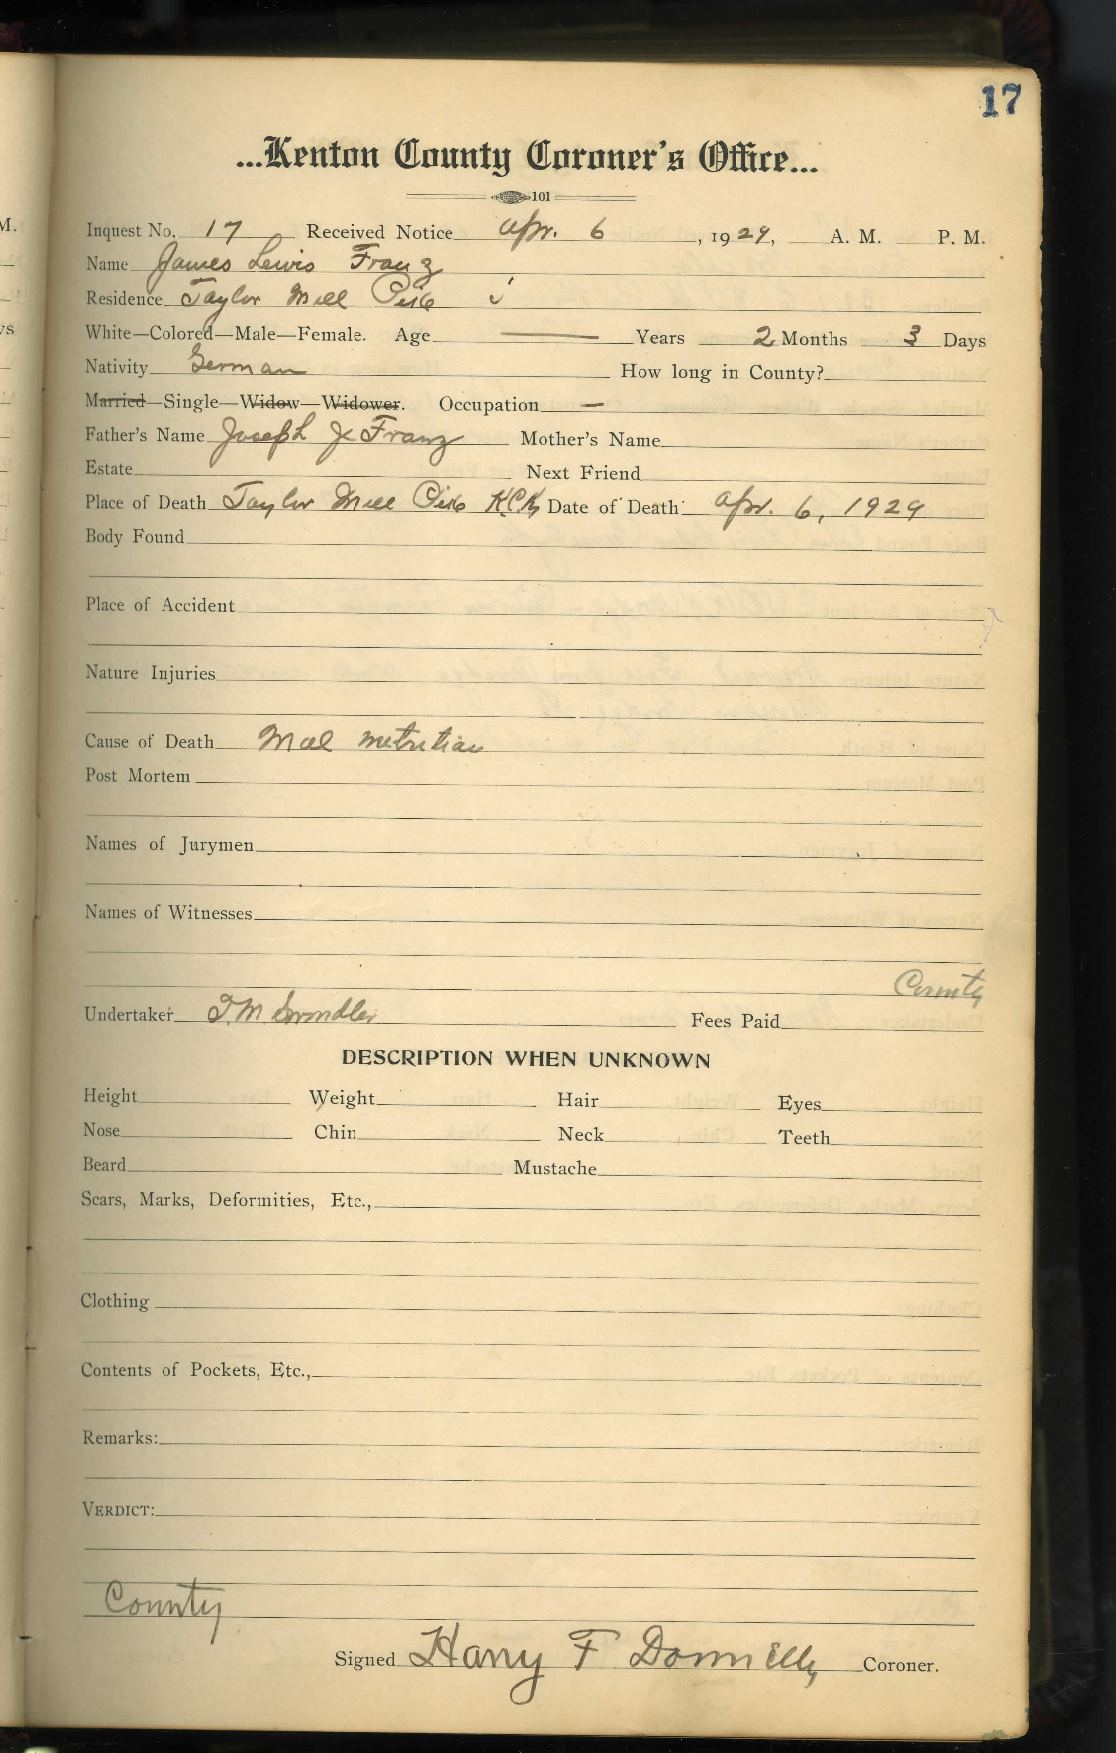 17
...Kenton County Coroner's Office...
101
Inquest No. 17 Received Notice Apr. 6, 1929, A. M. P. M.
Name James Lewis Franz
Residence Taylor Mill Pike
White—Colored—Male—Female. Age — Years 2 Months 3 Days
Nativity German How long in County?
Married—Single—Widow—Widower. Occupation —
Father's Name Joseph J Franz Mother's Name
Estate Next Friend
Place of Death Taylor Mill Pike K.C.K Date of Death: Apr. 6, 1929
Body Found
Place of Accident
Nature Injuries
Cause of Death Mal nutrition
Post Mortem
Names of Jurymen
Names of Witnesses
County
Undertaker T. M Swindler Fees Paid
DESCRIPTION WHEN UNKNOWN
Height Weight Hair Eyes
Nose Chin Neck Teeth
Beard Mustache
Scars, Marks, Deformities, Etc.,
Clothing
Contents of Pockets, Etc.,
Remarks:
VERDICT:
County
Signed Harry F Donnelly Coroner.